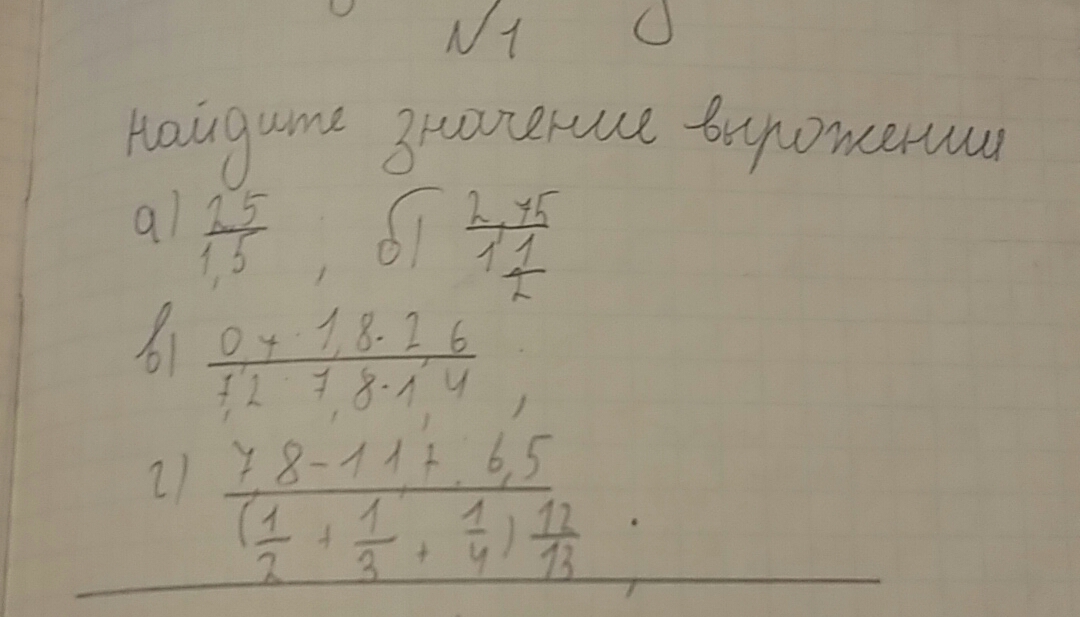 N1
найдите значение вырожении
а) 2,5/1,5 , б) 2,75/1 1/2
в) 0,7 · 1,8 · 2,6 / 7,2 · 7,8 · 1,4 ,
г) 7,8 - 11,7 : 6,5 / (1/2 + 1/3 + 1/4) 12/13 .